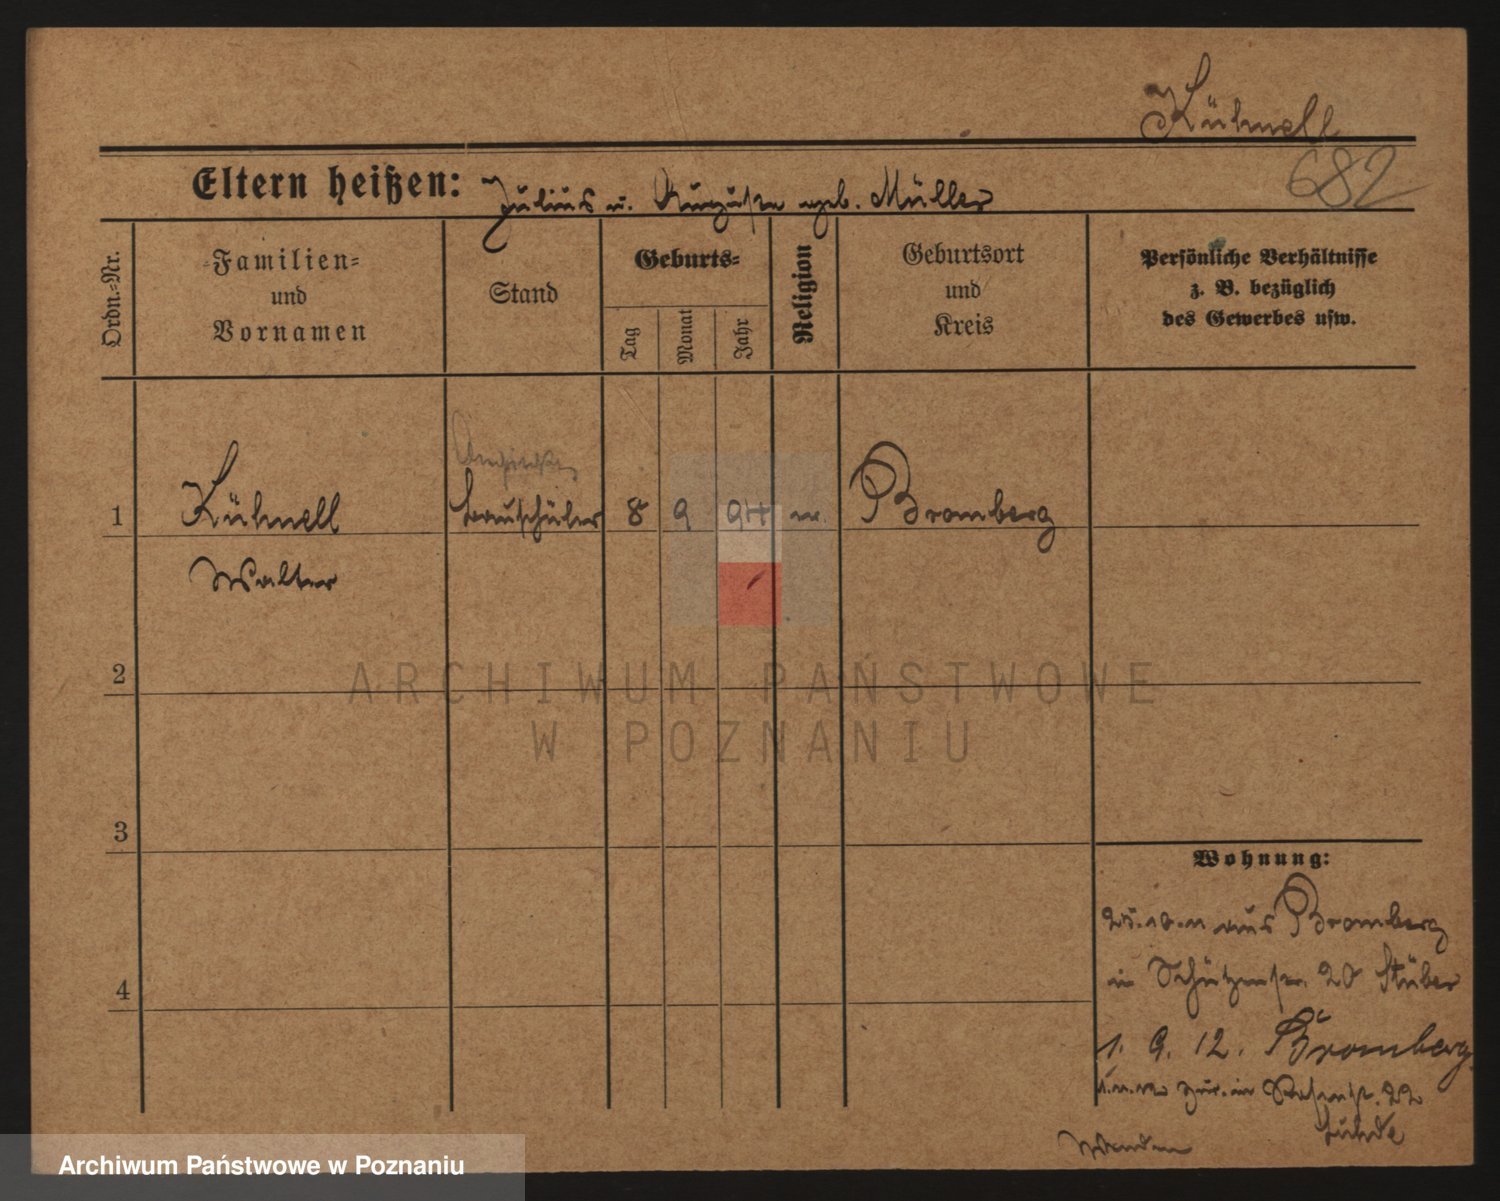 Kühnell
682
Eltern heißen: Julius u. Auguste geb. Müller
Ordn.=Nr.
Familien=
und
Vornamen
Stand
Geburts=
Tag
Monat
Jahr
Religion
Geburtsort
und
Kreis
Persönliche Verhältnisse
z. B. bezüglich
des Gewerbes usw.
1 Kühnell Bauschüler 8 9 94 ev. Bromberg
Walter
2
3
4
Wohnung:
aus Bromberg
in Schützenstr. 20 Stüber
1. 9. 12. Bromberg
zur. in 22
Wenden
ARCHIWUM PAŃSTWOWE
W POZNANIU
Archiwum Państwowe w Poznaniu